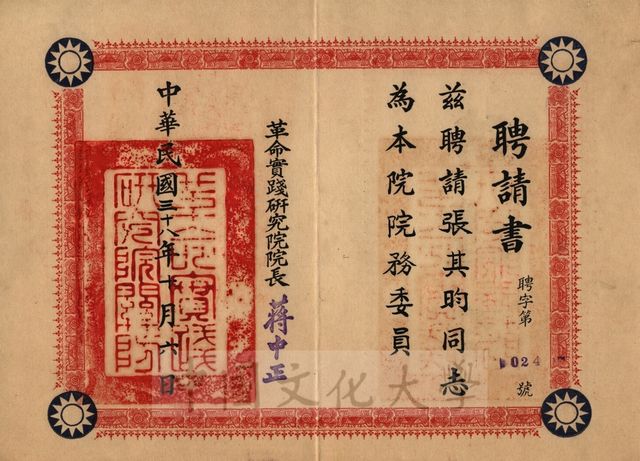 聘請書
聘字第
024
號
茲聘請張其昀同志
為本院院務委員
革命實踐研究院院長
蔣中正
中華民國三十八年十月六日
中国文化大學